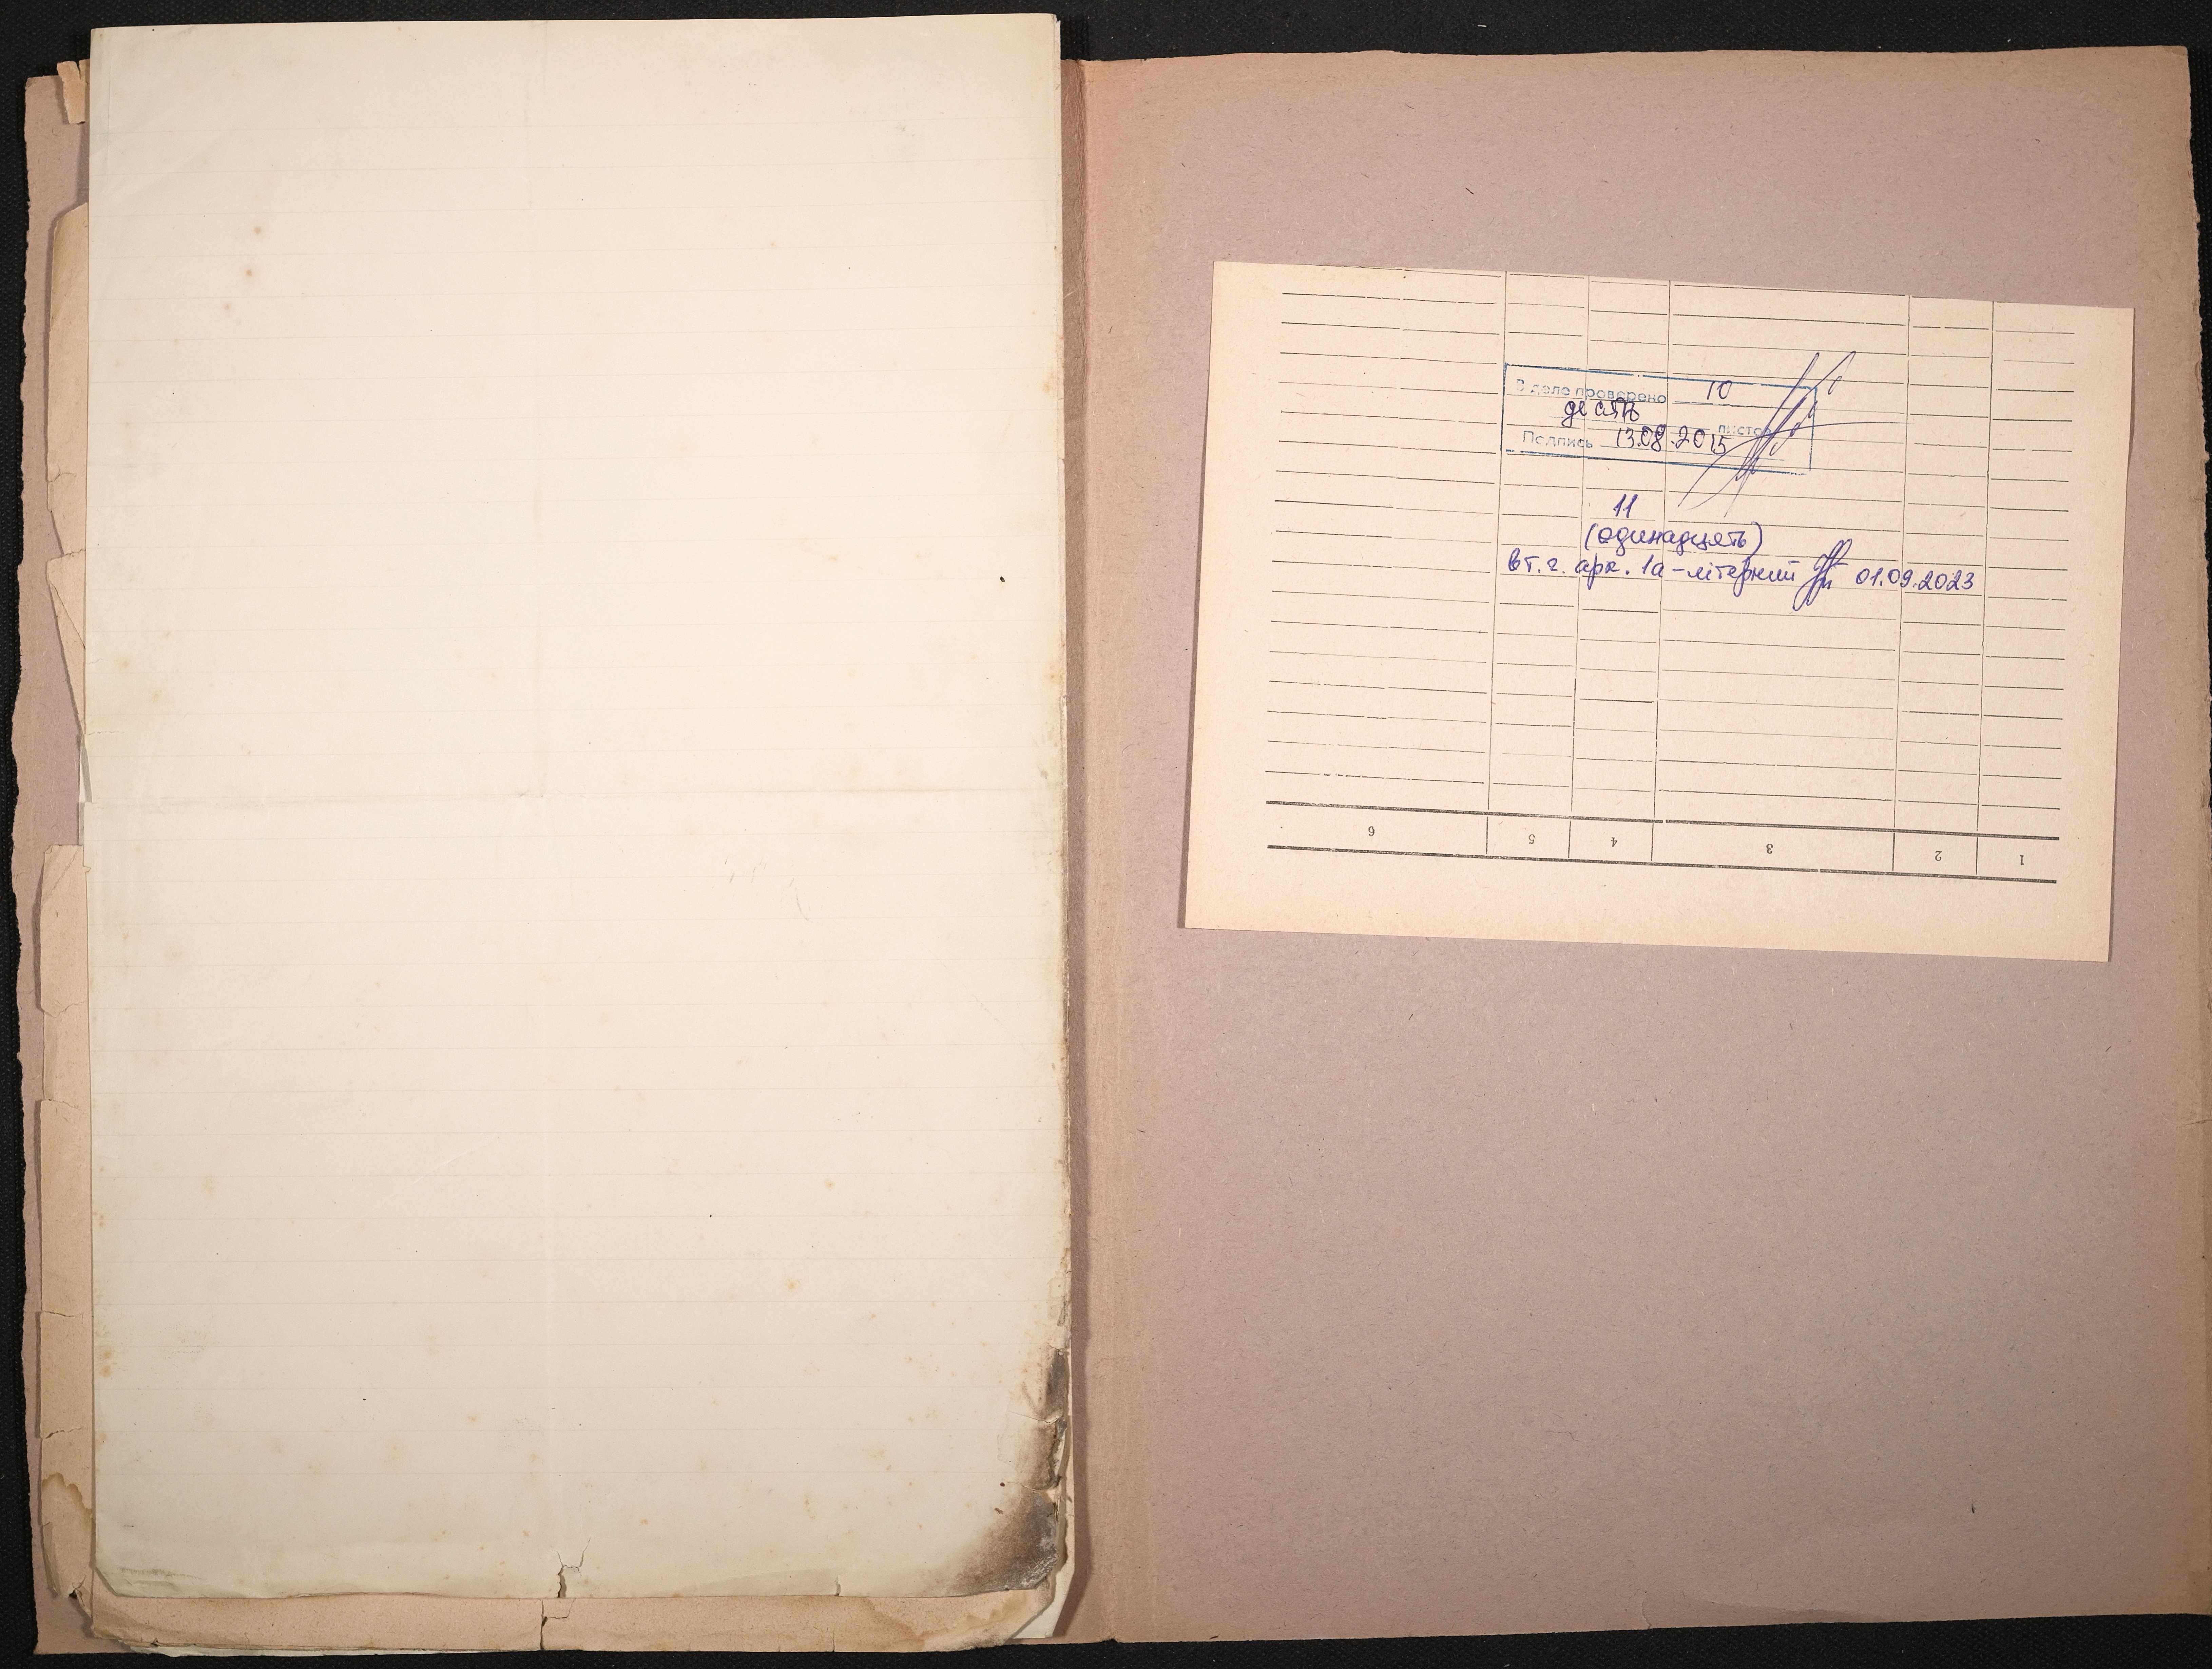 В деле проверено 10
десять
листов
Подпись 13.08.2015
11
(одинадцять)
в т.ч. арк. 1а - літерний 01.09.2023
6 5 4 3 2 1